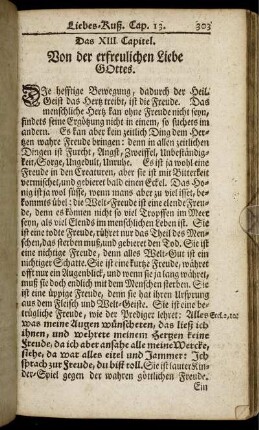 Liebes-Kuß. Cap. 13. 303
Das XIII. Capitel.
Von der erfreulichen Liebe
GOttes.
DIe hefftige Bewegung, dadurch der Heil.
Geist das Hertz treibt, ist die Freude. Das
menschliche Hertz kan ohne Freude nicht seyn,
findets seine Ergötzung nicht in einem, so suchets im
andern. Es kan aber kein zeitlich Ding dem Her-
tzen wahre Freude bringen: denn in allen zeitlichen
Dingen ist Furcht, Angst, Zweiffel, Unbeständig-
keit, Sorge, Ungedult, Unruhe. Es ist ja wohl eine
Freude in den Creaturen, aber sie ist mit Bitterkeit
vermischet, und gebieret bald einen Eckel. Das Ho-
nig ist ja wol süsse, wenn mans aber zu viel isset, be-
kommts übel: die Welt-Freude ist eine elende Freu-
de, denn es können nicht so viel Tropffen im Meer
seyn, als viel Elends im menschlichen Leben ist. Sie
ist eine todte Freude, rühret nur das Theil des Men-
schen, das sterben muß, und gebieret den Tod. Sie ist
eine nichtige Freude, denn alles Welt-Gut ist ein
nichtiger Schatte. Sie ist eine kurtze Freude, währet
offt nur ein Augenblick, und wenn sie ja lang währet,
muß sie doch endlich mit dem Menschen sterben. Sie
ist eine üppige Freude, denn sie hat ihren Ursprung
aus dem Fleisch und Welt-Geiste. Sie ist eine be-
trügliche Freude, wie der Prediger lehret: Alles
was meine Augen wünscheten, das ließ ich
ihnen, und wehrete meinem Hertzen keine
Freude, da ich aber ansahe alle meine Wercke,
siehe, da war alles eitel und Jammer: Ich
sprach zur Freude, du bist toll. Sie ist lauter Kin-
der-Spiel gegen der wahren göttlichen Freude.
Ein